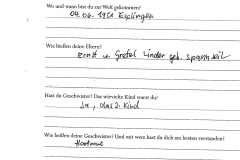 Wo und wann bist du zur Welt gekommen?
04.06.1951 Esslingen
Wie hießen deine Eltern?
Ernst u. Gretel Linder geb.
Hast du Geschwister? Das wievielte Kind warst du?
Ja, das 2. Kind
Wie heißen deine Geschwister? Und mit wem hast du dich am besten verstanden?
Hartmut